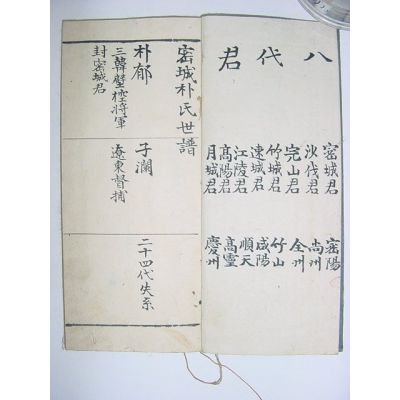 八代君
密城君 密陽
沙伐君 尚州
完山君 全州
竹城君 竹山
速城君 咸陽
江陵君 順天
高陽君 高靈
月城君 慶州
密城朴氏世譜
朴郁
三韓壁控將軍
封密城君
子瀾
遼東督捕
二十四代失系